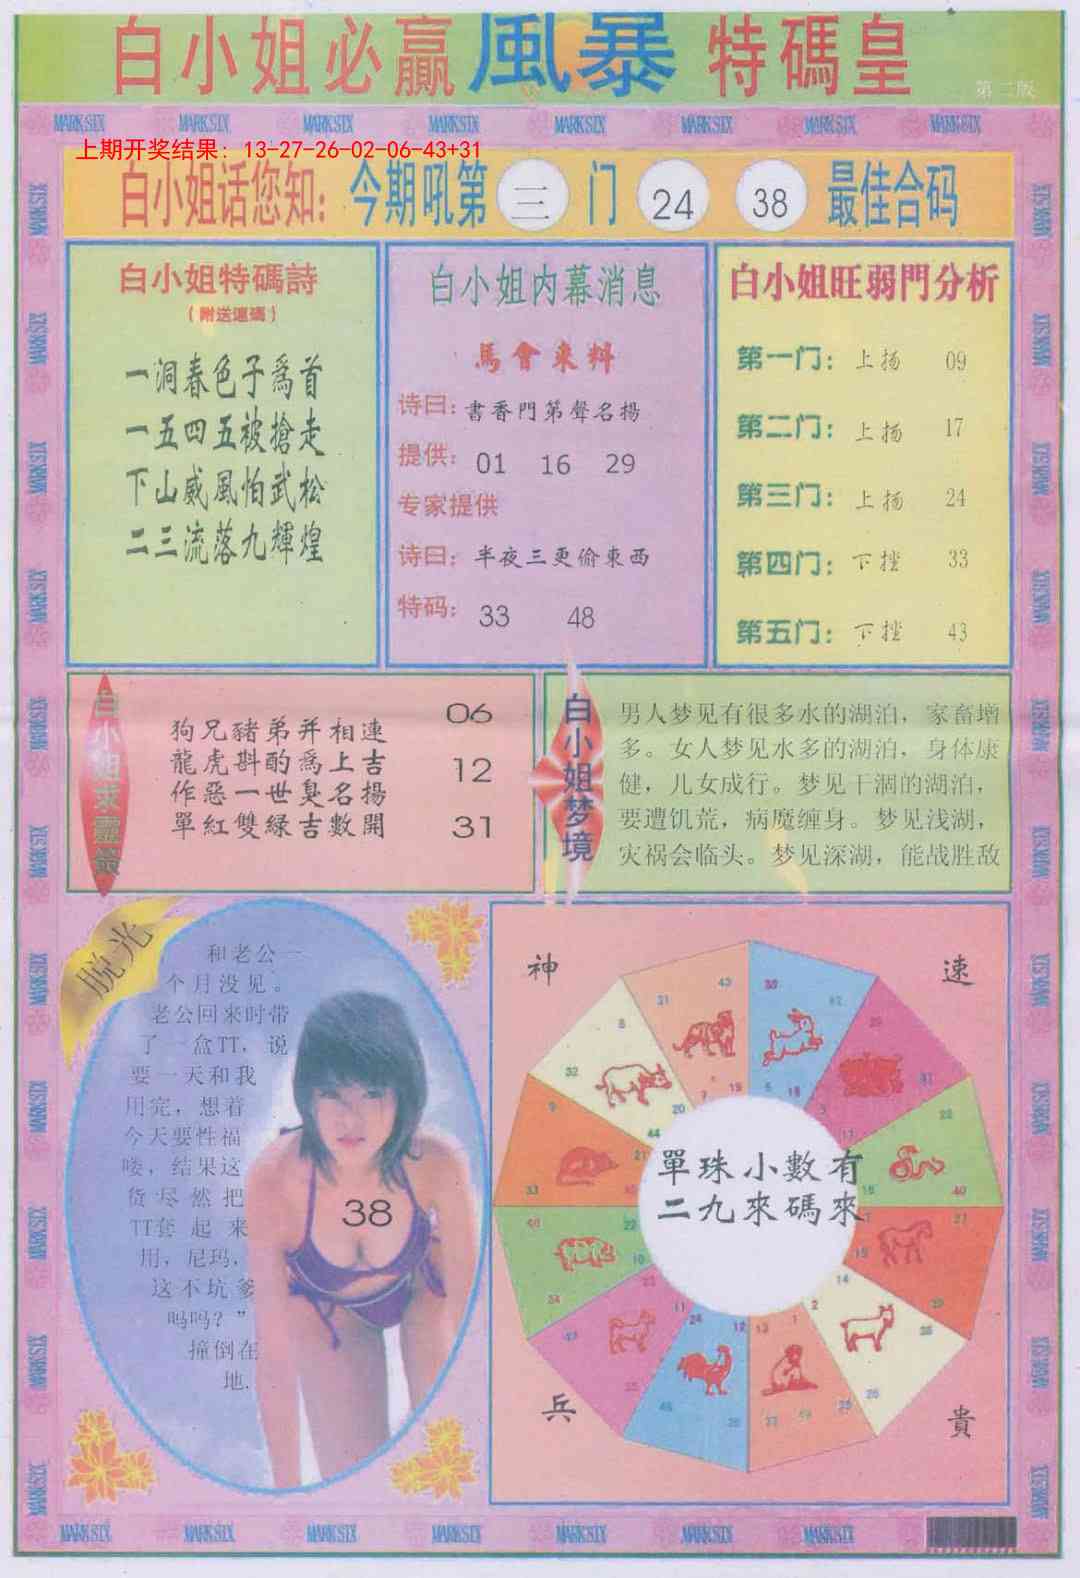 白小姐必贏風暴特碼皇
第二版
MARK SIX MARK SIX MARK SIX MARK SIX MARK SIX MARK SIX MARK SIX MARK SIX
上期开奖结果：13-27-26-02-06-43+31
白小姐话您知：今期吼第 三 门 24 38 最佳合码
白小姐特碼詩
（附送連碼）
一洞春色子爲首
一五四五被搶走
下山威風怕武松
二三流落九輝煌
白小姐内幕消息
馬會來料
诗曰：書香門第聲名揚
提供：01 16 29
专家提供
诗曰：半夜三更偷東西
特码：33 48
白小姐旺弱門分析
第一门：上扬 09
第二门：上扬 17
第三门：上扬 24
第四门：下挫 33
第五门：下挫 43
白小姐求靈籤
狗兄豬弟并相連
龍虎斟酌爲上吉
作惡一世臭名揚
單紅雙緑吉數開
06
12
31
白小姐梦境
男人梦见有很多水的湖泊，家畜增
多。女人梦见水多的湖泊，身体康
健，儿女成行。梦见干涸的湖泊，
要遭饥荒，病魔缠身。梦见浅湖，
灾祸会临头。梦见深湖，能战胜敌
脱光
和老公一
个月没见。
老公回来时带
了一盒TT，说
要一天和我
用完，想着
今天要性福
喽，结果这
货尽然把
TT套起来
用，尼玛，
这不坑爹
吗吗？”
撞倒在
地.
38
神
速
兵
貴
單珠小數有
二九來碼來
MARK SIX MARK SIX MARK SIX MARK SIX MARK SIX MARK SIX MARK SIX